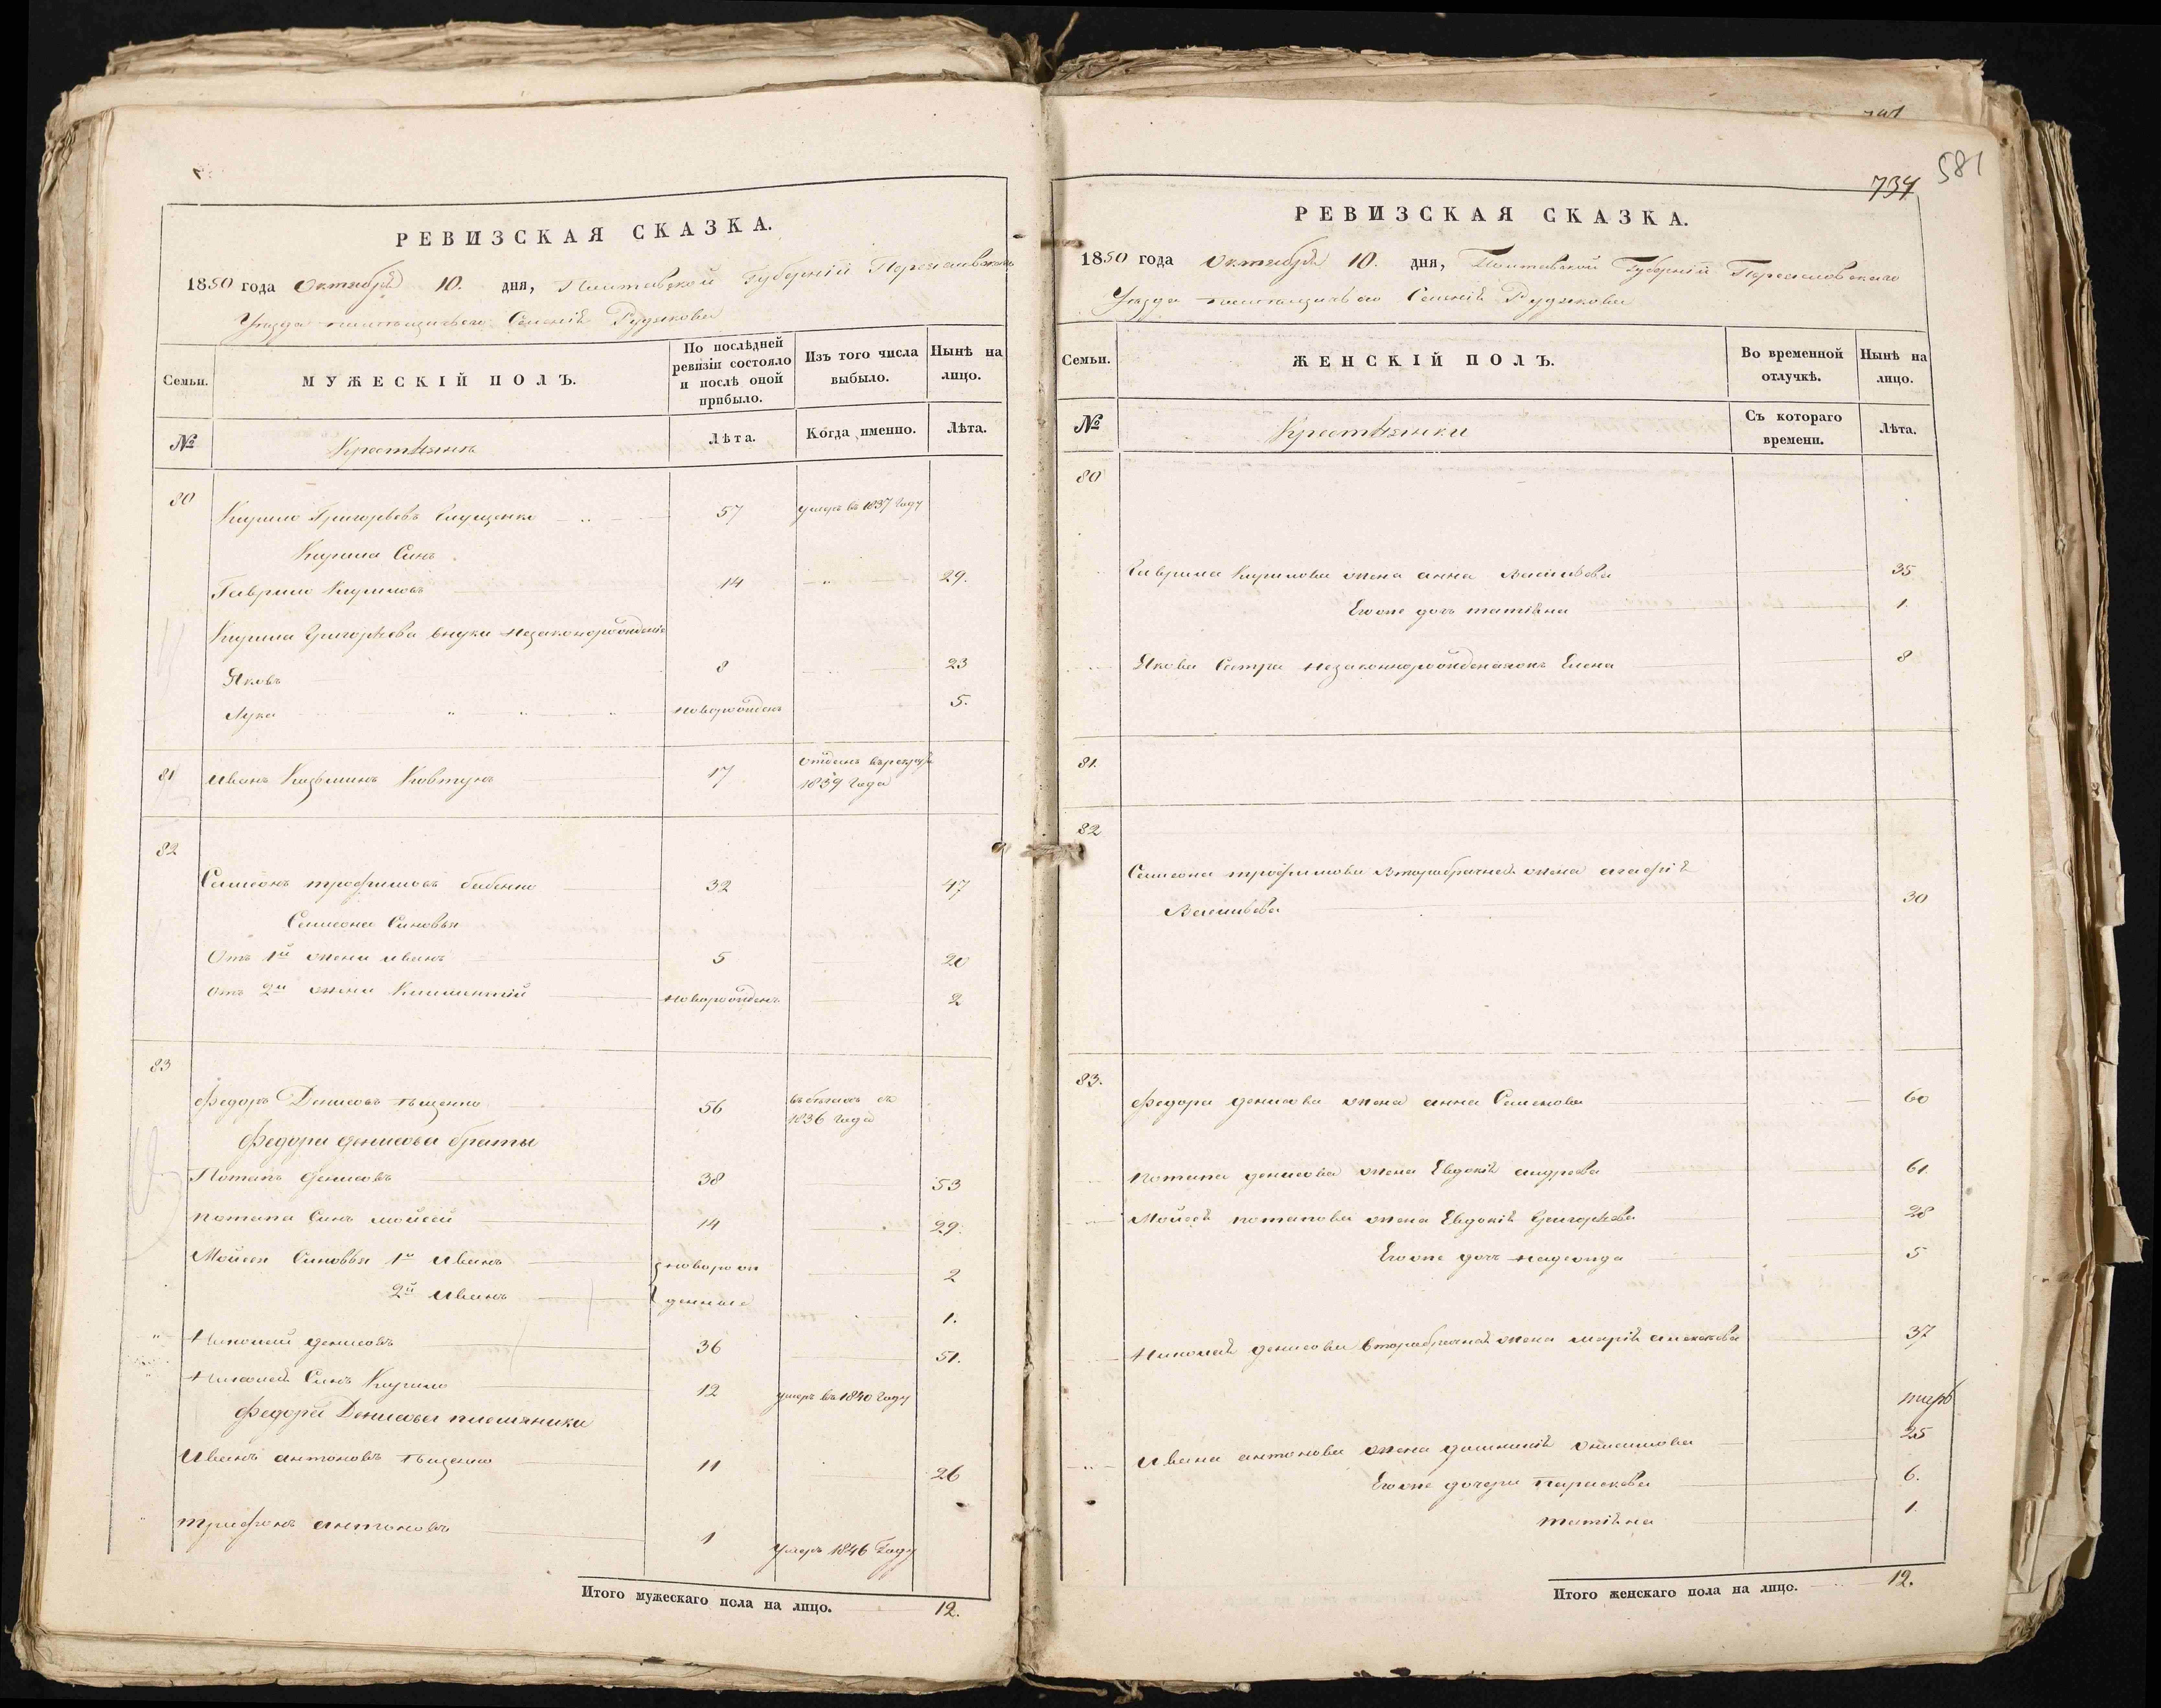 РЕВИЗСКАЯ СКАЗКА.
1850 года Октября 10. дня, Полтавской Губерніи Переяславскаго
Уезда помещичьяго Селенія Рудякова
Семьи.
МУЖЕСКІЙ ПОЛЪ.
По послѣдней ревизіи состояло и послѣ оной прибыло.
Изъ того числа выбыло.
Нынѣ на лицо.
№
Крестьянъ
Лѣта.
Когда именно.
Лѣта.
80
Кирило Григорьевъ 57 умеръ въ 1837 году
Кирила Синъ
Гаврило Кириловъ 14 29.
Кирила Григорьева внуки незаконорожденніе
Яковъ 8 23
Лука новорожденъ 5.
81 Иванъ Козьминъ Ковтунъ 17 отданъ въ рекруты
1839 года
82
Самсонъ трофимовъ бабенко 32 47
Самсона Синовья
Отъ 1й жени иванъ 5 20
Отъ 2й жени Климентій новорожденъ 2
83
Федоръ Денисовъ 56 въ бегахъ съ
1836 года
Федора денисова браты
Потапъ денисовъ 38 53
потапа Синъ мойсей 14 29.
Мойсея Синовья 1й Иванъ новорож 2
2й Иванъ денные 1.
Николай денисовъ 36 51.
Николая Синъ Кирило 12 умеръ въ 1840 году
Федора Денисова племяники
Иванъ антоновъ 11 26
трифонъ антоновъ 1 умеръ 1846 Году
Итого мужескаго пола на лицо. 12.
581
734
РЕВИЗСКАЯ СКАЗКА.
1850 года Октября 10. дня, Полтавской Губерніи Переяславскаго
Уезда помещичьяго Селенія Рудякова
Семьи.
ЖЕНСКІЙ ПОЛЪ.
Во временной отлучкѣ.
Нынѣ на лицо.
№
Крестьянки
Съ котораго времени.
Лѣта.
80
Гаврила Кирилова жена анна Васильева 35
Егоже дочь татіяна 1.
Якова Сестра Елена 8
81.
82
Самсона трофимова второбрачная жена агафія
Васильева 30
83.
Федора денисова жена анна Семенова 60
потапа денисова жена Евдокія андреева 61.
Мойсея потапова жена Евдокія Григорьева 28
Егоже дочь надежда 5
Николая денисова второбрачная жена марія алексеева 37
Ивана антонова жена 25
Егоже дочери параскева 6.
татіяна 1.
Итого женскаго пола на лицо. 12.